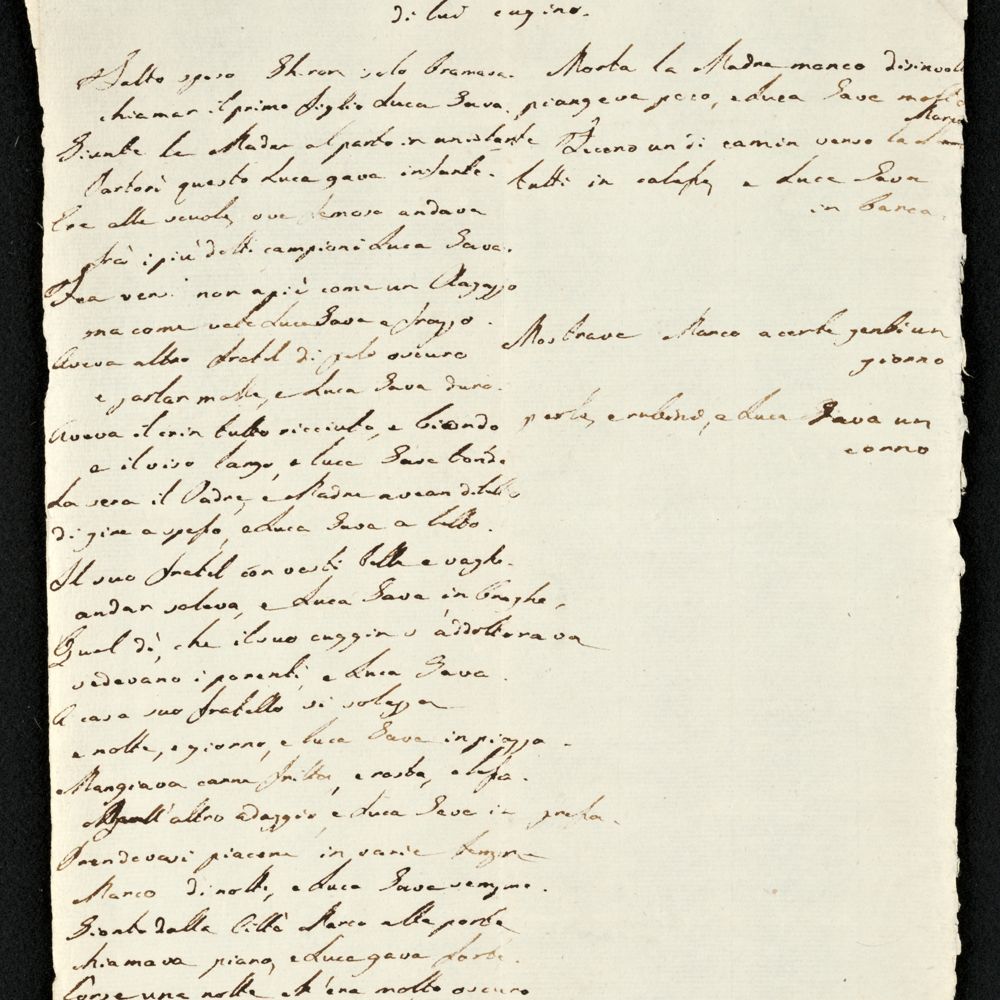 di lui cugino.
Fatto sposo Shiron solo bramava.
chiamar il primo figlio Luca Gava.
Giunta la Madre al parto in un istante
Partorì questo Luca gava infante.
Era alle scuole, ove famoso andava
frà i più dotti campioni Luca Gava.
Fea versi non apiè come un Ragazzo
ma come vate Luca Gava e pazzo.
Aveva altro fratel di pelo oscuro
e parlar molle, e Luca Gava duro.
Aveva il crin tutto ricciuto, e biondo
e il viso lungo, e luca Gava tondo
La sera il Padre, e Madre avean diletto
di gire a spasso, e Luca Gava a letto.
Il suo fratel con vesti belle e vaghe.
andar soleva, e Luca Gava in braghe.
Quel dì, che il suo cuggin s'addottorava
vedevano i parenti, e Luca Gava.
A casa suo fratello si solazza
e notte, e giorno, e luca Gava in piazza.
Mangiava carne fritta, e rosta, e lessa.
Quell'altro adaggio, e Luca Gava in pressa.
Prendevasi piacere in varie tempre
Marco di notte, e Luca Gava sempre.
Gionto dalla Città Marco alle porte
chiamava piano, e Luca gava forte.
Corse una notte ch'era molto oscuro
Morta la Madre manco disinvolt
piangeva poco, e Luca Gava molto
Marco
Fecero un dì camin verso la
tutti in calesse, e Luca Gava
in barca.
Mostrava Marco a certe genti un
giorno
perle, e rubini, e Luca Gava un
corno